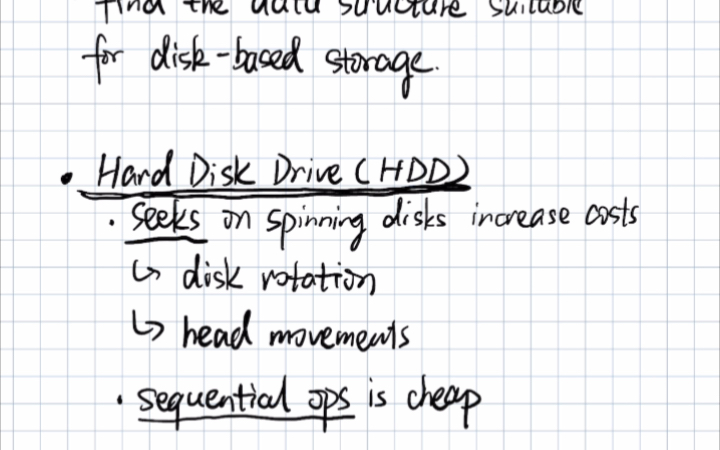 find the data structure suitable
for disk-based storage.
• Hard Disk Drive (HDD)
• seeks on spinning disks increase costs
↳ disk rotation
↳ head movements
• sequential ops is cheap